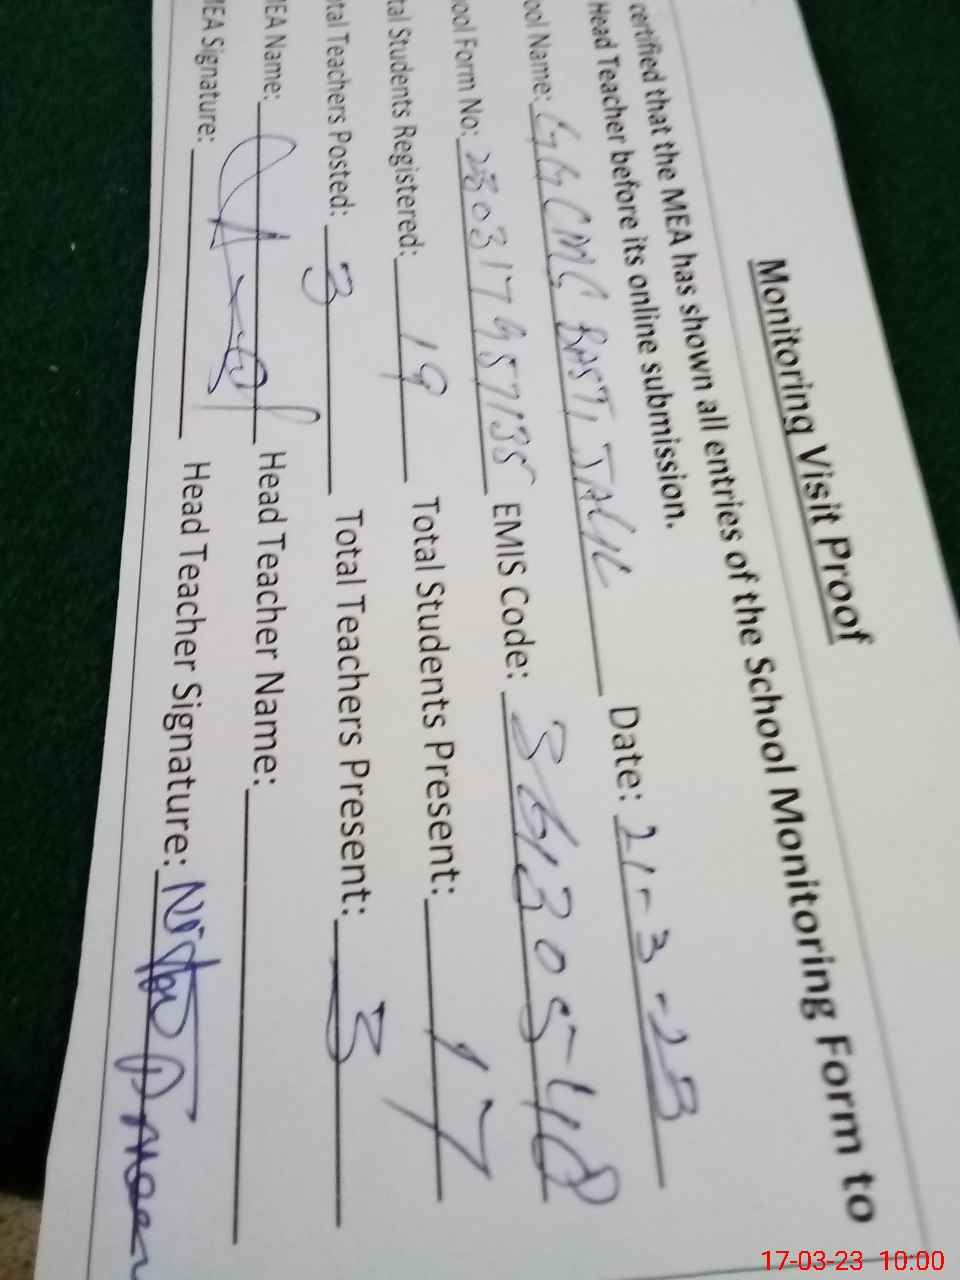 Monitoring Visit Proof
certified that the MEA has shown all entries of the School Monitoring Form to
Head Teacher before its online submission.
ool Name: GGCMC BASTI JALIL Date: 21-3-23
ool Form No: EMIS Code:
tal Students Registered: 19 Total Students Present: 17
tal Teachers Posted: 3 Total Teachers Present: 3
MEA Name: Head Teacher Name:
MEA Signature: Head Teacher Signature:
17-03-23 10:00